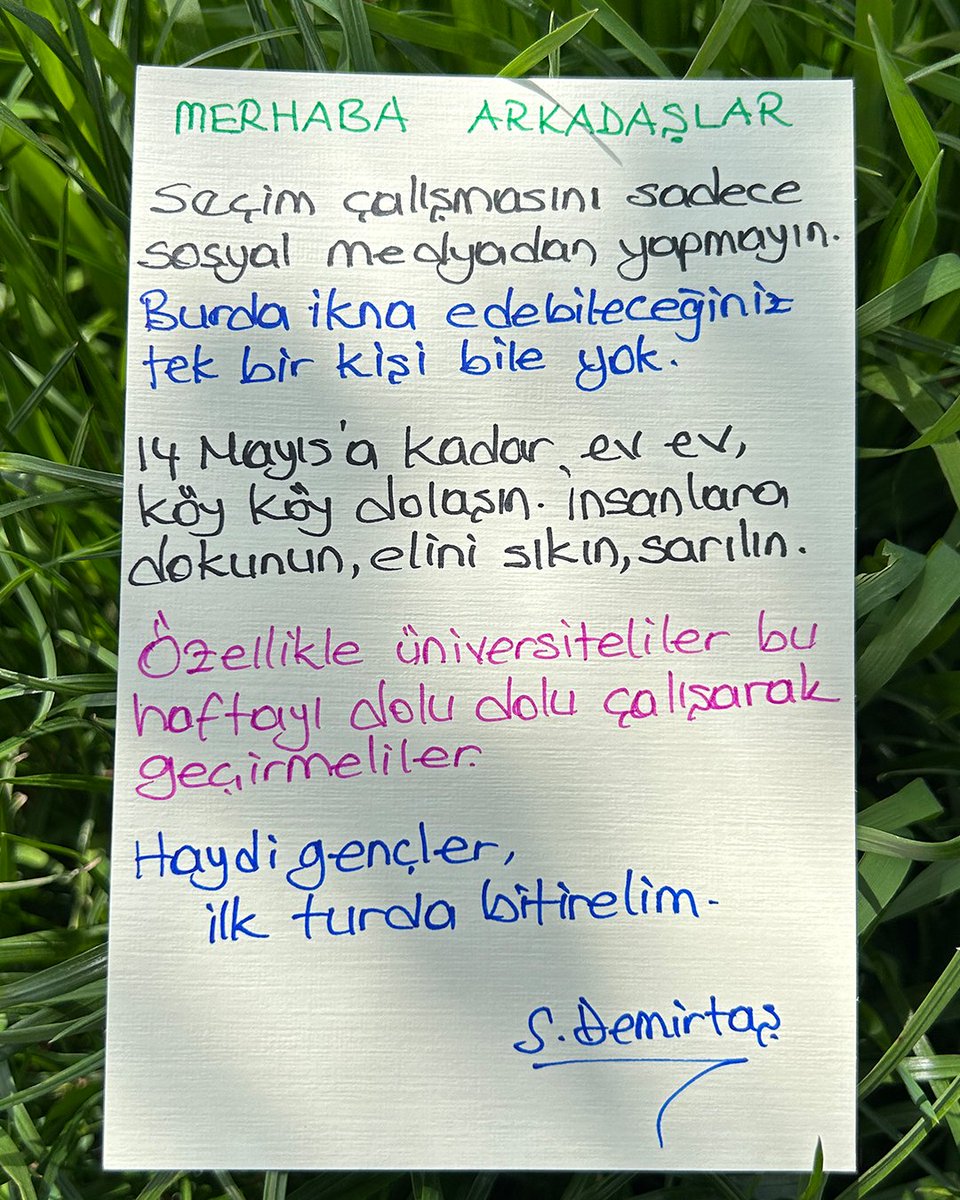 MERHABA ARKADAŞLAR
Seçim çalışmasını sadece
sosyal medyadan yapmayın.
Burda ikna edebileceğiniz
tek bir kişi bile yok.
14 Mayıs'a kadar, ev ev,
köy köy dolaşın. İnsanlara
dokunun, elini sıkın, sarılın.
Özellikle üniversiteliler bu
haftayı dolu dolu çalışarak
geçirmeliler.
Haydi gençler,
ilk turda bitirelim.
S. Demirtaş